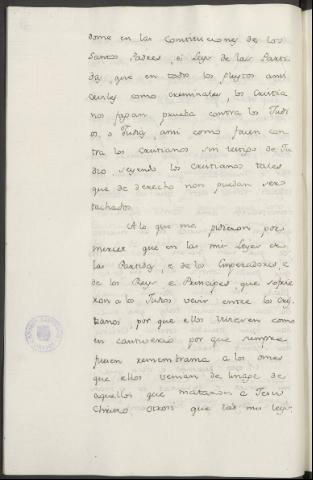 dome en las Constituciones de los
Santos Padres, é Leys de las Parti
das, que en todos los pleytos ansi
ceviles como creminales, los Cristia
nos fagan prueba contra los Judi
os, o Judia, ansi como facen con
tra los Cristianos sin testigo de Ju
dio, seyendo los cristianos tales
que de derecho non puedan ser
tachados.
A lo que me pidieron por
merced que en las mis Leyes en
las Partidas, e de los Emperadores, e
de los Reys e Principes que sofrie
ron a los Judios vevir entre los Cris
tianos, por que ellos viviesen como
en cautiverio por que siempre
fuesen remembranza a los omes
que ellos venian de linage de
aquellos que mataron a Jesu
Christo. Otrosi que las mis leys,